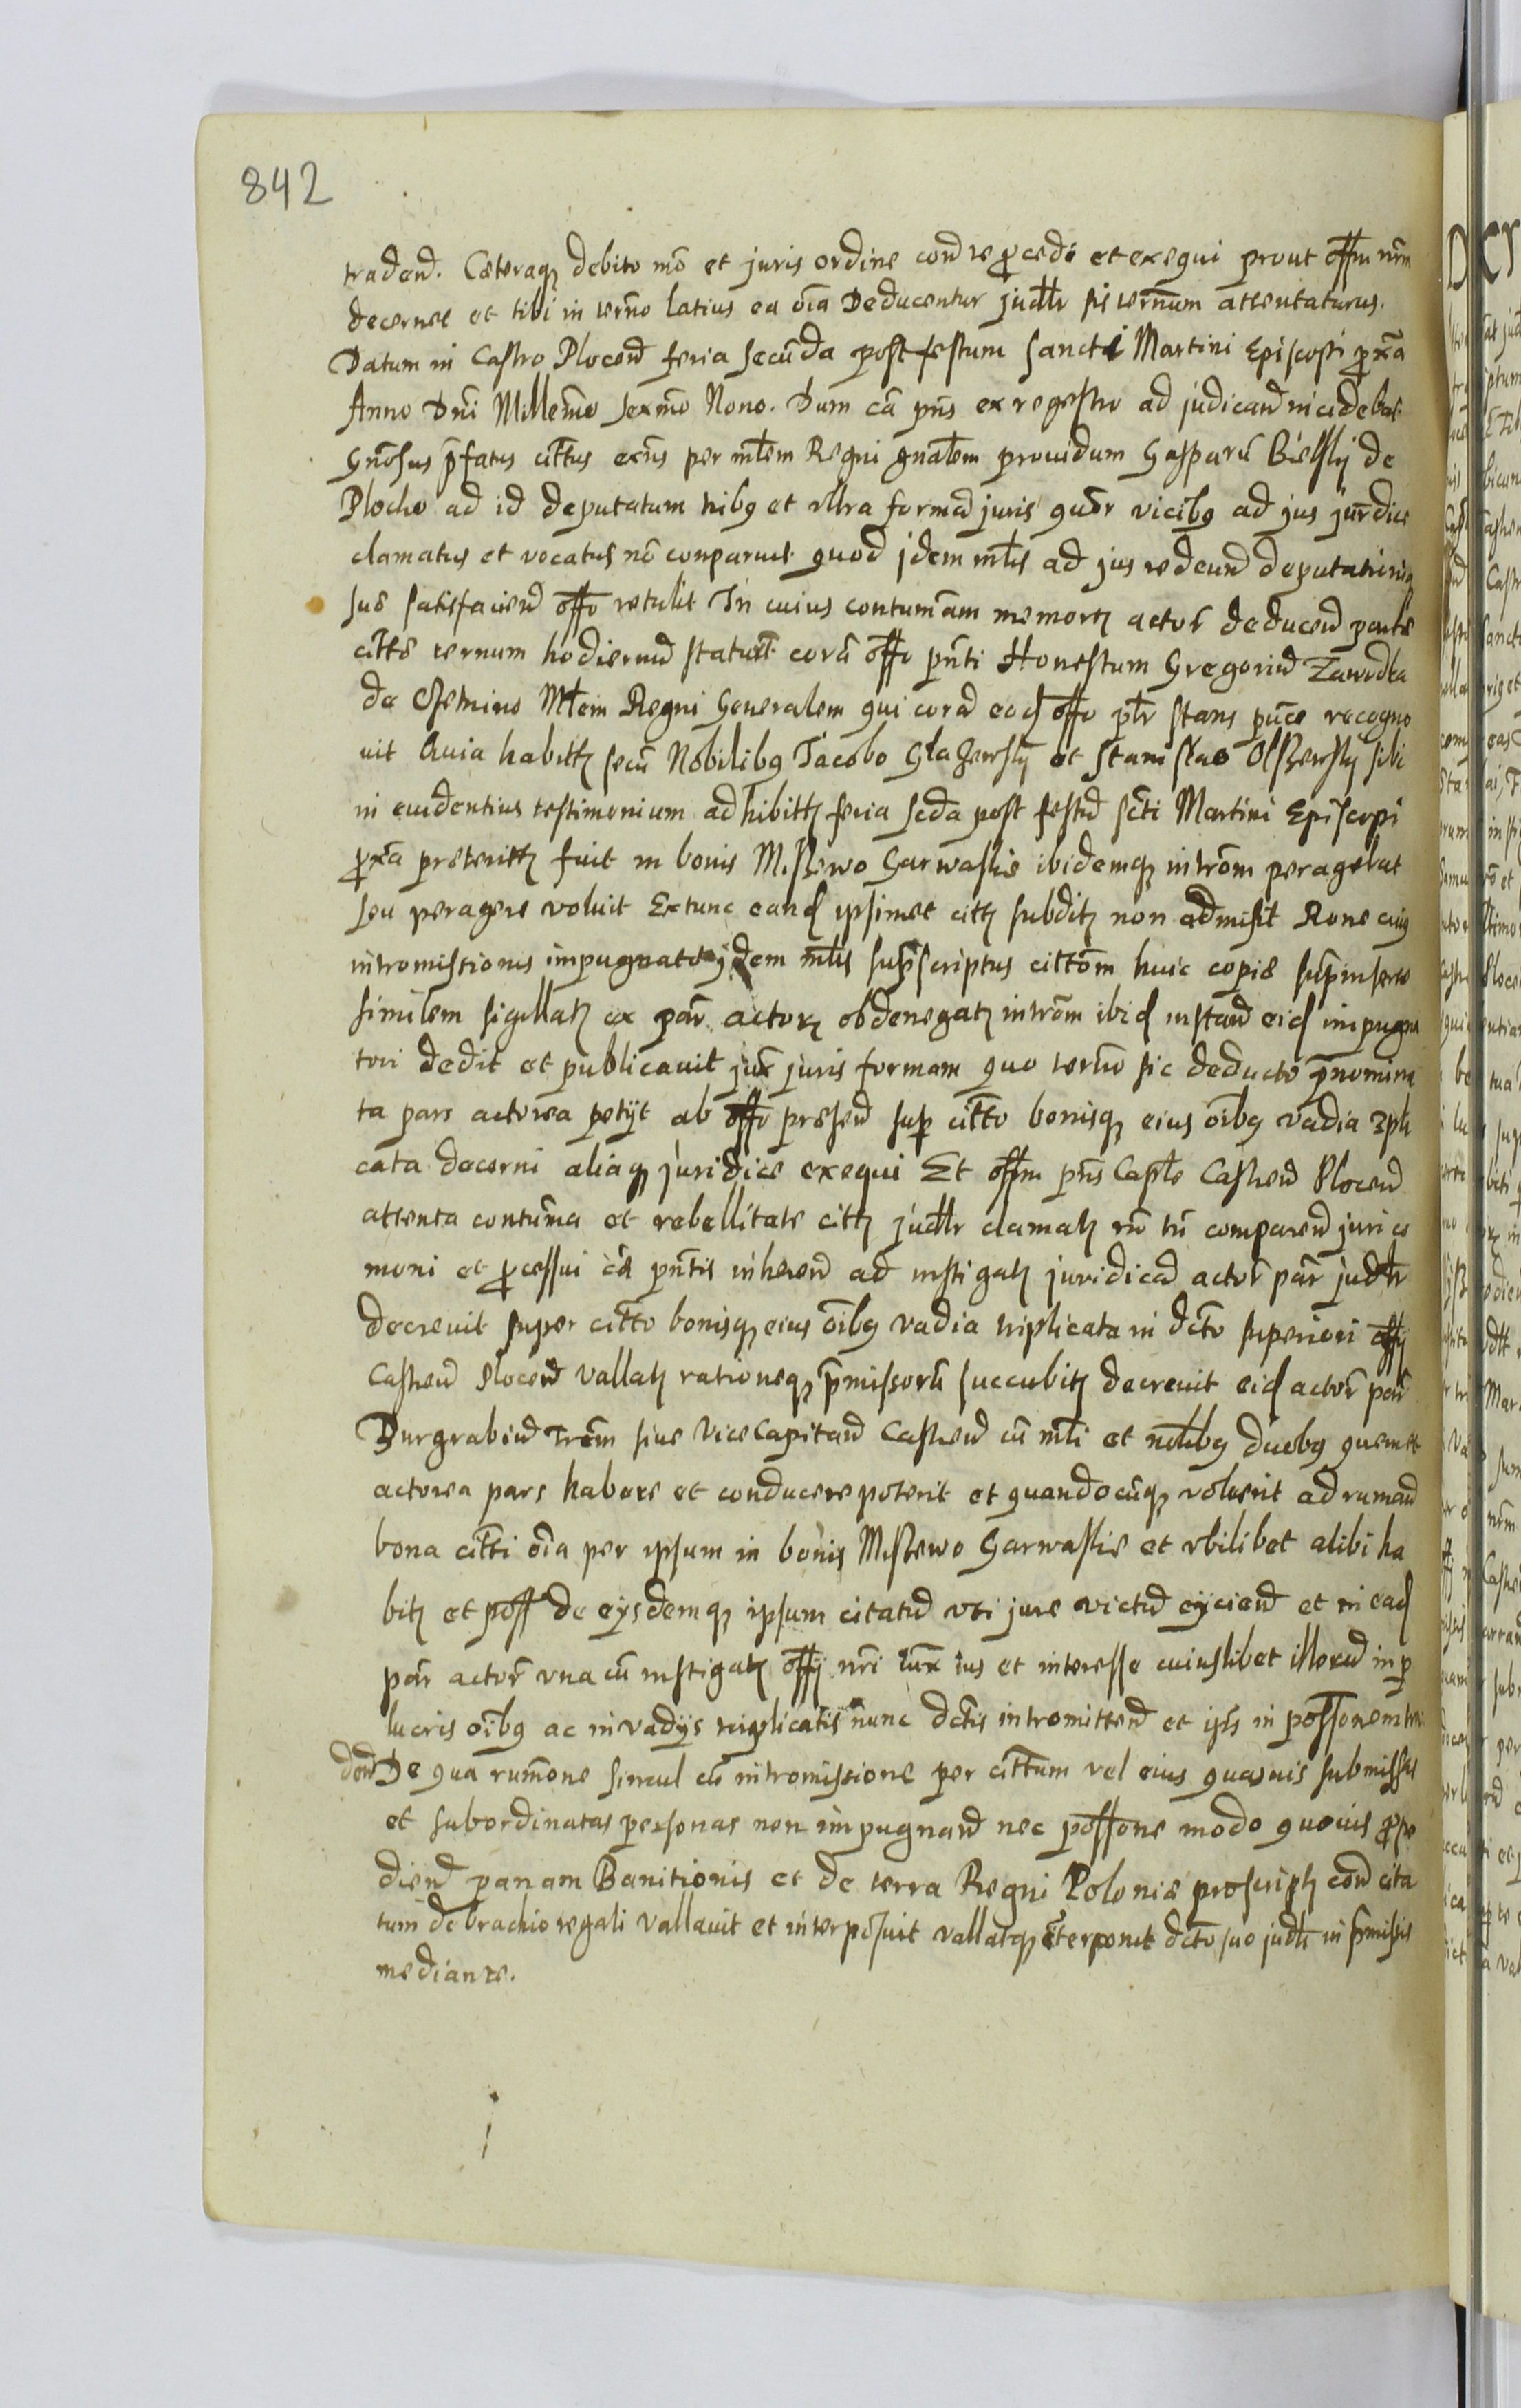 842
tradend. Cæteraq debito mō et juris ordine con̄ te p̄cedi et exequi prout offm nrm
decernet et tibi in ter̄no latius ea oīa Deducentur judlr sis ternum attentaturus.
Datum in Castro Plocen̄ feria secūda post festum Sancti Martini Episcopi p̄xā
Anno Dnī Millemō sexmō Nono. Dum cā pn̄s ex regestro ad judican̄ incidebat
Gnōsus p̄fatus cittus exn̄s per mlem Regni gnalem prouidum Gasparū Bielsky de
Plocko ad id deputatum tribq et ultra formā juris quor vicibq ad jus jurdice
clamatus et vocatus nō conparuit quod jdem mlis ad jus redeun̄ deputationi
suæ satisfacien̄ offo retulit In cuius contumām memortz actor̄ deducen̄ parte
cittæ ternum hodiernū statuit corā offo pn̄ti Honestum Gregoriū Zawidka
de Mlem Regni Generalem qui corā eod offo plr stans pn̄ce recogno
uit Quia habittz secū Nobilibq Jacobo Glazewsky et Stanislao Olszewsky sibi
in euidentius testimonium adhibittz feria scda post festū scti Martini Episcopi
p̄xā præterittz fuit in bonis Miszewo Garwaskie ibidemq intrōm peragebat
seu peragere voluit Extunc eand ipsimet cittz subditz non admisit Rone cuiq
intromissionis impugnatæ jdem mlis suprscriptus cittōm huic copiæ suprinsertæ
similem sigillatz ex par̄ actorz obdenegatz intrōm ibid instan̄ eid impugna
tori dedit et publicauit jux juris formam quo ternō sic deducto p̄nomina
ta pars actorea petijt ab offo præsen̄ sup citto bonisq eius oībq vadia tpli
cata decerni aliaq juridice exequi Et offm pn̄s Caple Castren̄ Plocen̄
attenta contumā et rebellitate cittz judlr clamatz nō tn̄ comparen̄ juri ce
moni et p̄cessui cæ pn̄tis inhæren̄ ad instigatz juridicā actor̄ par̄ judlr
decreuit super citto bonisq eius oībq vadia triplicata in dcto superiori offi
Castren̄ Plocen̄ vallatz rationeq p̄missorū succubitz decreuit eid actor̄ par̄
Burgrabiū Trēm siue Vice Capitan̄ Castren̄ cū mli et nobilibq duobq quem et
actorea pars habere et conducere poterit et quandocūq voluerit ad ruman̄
bona citti oīa per ipsum in bonis Miszewo Garwaskie et vbilibet alibi ha
bitz et poss de eysdemq ipsum citatū vti jure victū eijcien̄ et in ead
par̄ actor̄ vna cū instigatz offij nri iux ius et interesse cuiuslibet illorū in p̄
lucris oībq ac in vadijs triplicatis nunc dctis intromitten̄ et ijs in possonem tra
den̄ De qua rumōne simul cū intromissione per cittum vel eius quasuis submissas
et subordinatas personas non impugnan̄ nec possone modo quouis p̄pe
dien̄ pænam Banitionis et de terra Regni Poloniæ proscriptz con̄ cita
tum de brachio regali vallauit et interposuit vallatq et interponit dcto suo judli in p̄missis
mediante.